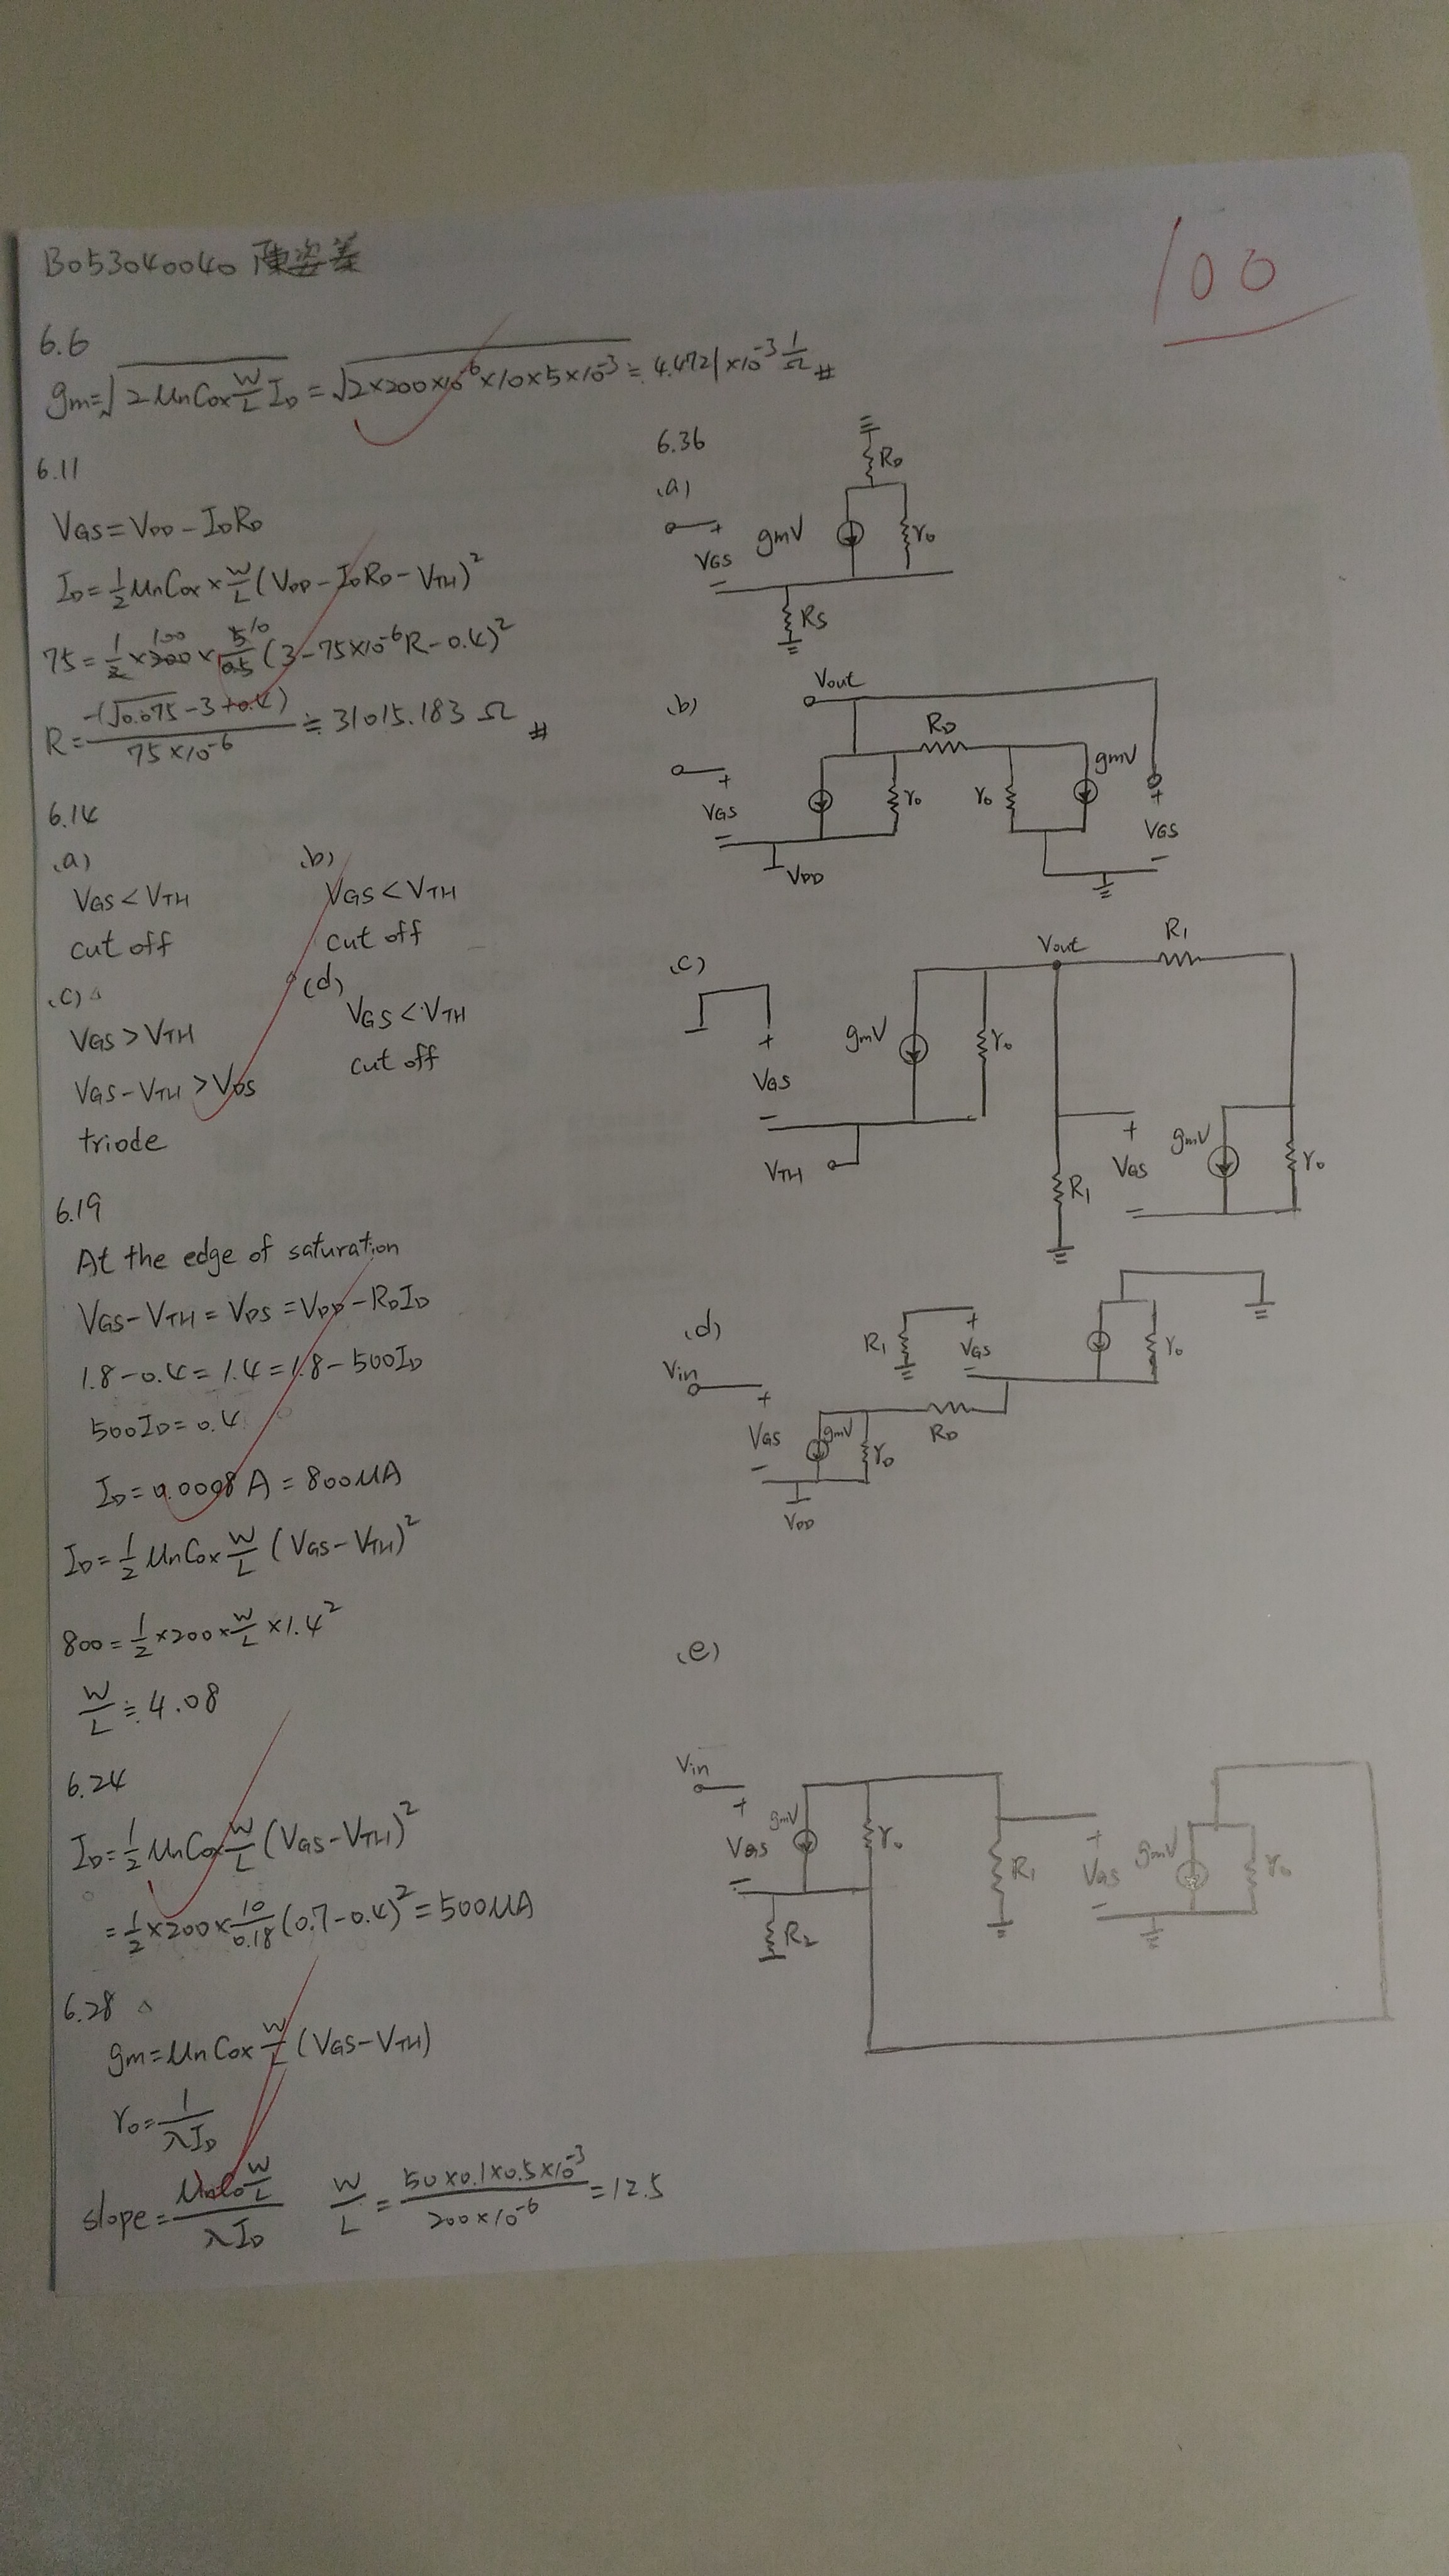 B053040040 陳姿
100
6.6
gm=√2UnCox W/L ID = √2×200×10^-6×10×5×10^-3 ≒ 4.4721×10^-3 1/Ω #
6.11
VGS=VDD-IDRD
ID=1/2 UnCox×W/L(VDD-IDRD-VTH)²
75=1/2×200 100×5/0.5 10(3-75×10^-6R-0.4)²
R=-(√0.075-3+0.4)/75×10^-6 ≒ 31015.183 Ω #
6.14
(a)
VGS<VTH
cut off
(b)
VGS<VTH
cut off
(c)
VGS>VTH
VGS-VTH>VDS
triode
(d)
VGS<VTH
cut off
6.19
At the edge of saturation
VGS-VTH=VDS=VDD-RDID
1.8-0.4=1.4=1.8-500ID
500ID=0.4
ID=0.0008A=800UA
ID=1/2 UnCox W/L (VGS-VTH)²
800=1/2×200×W/L×1.4²
W/L≒4.08
6.24
ID=1/2 UnCox W/L (VGS-VTH)²
=1/2×200×10/0.18(0.7-0.4)²=500UA
6.28
gm=UnCox W/L (VGS-VTH)
ro=1/λID
slope=UnCo W/L/λID W/L=50×0.1×0.5×10^-3/200×10^-6=12.5
6.36
(a)
RD
gmV
ro
VGS
RS
(b)
Vout
RD
gmV
VGS
ro
ro
VGS
VDD
(c)
Vout
R1
gmV
ro
VGS
VTH
R1
VGS
gmV
ro
(d)
Vin
R1
VGS
ro
VGS
gmV
ro
RD
VDD
(e)
Vin
gmV
VGS
ro
R1
VGS
gmV
ro
R2